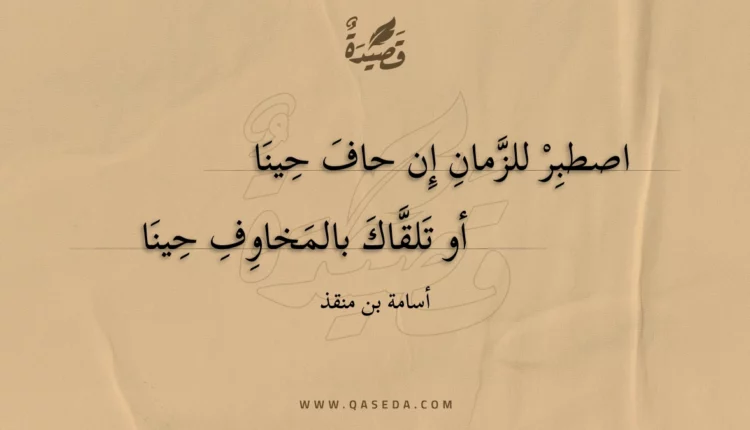 قَصِيدَةٌ
اصطبِرْ للزَّمانِ إِن حافَ حِينَا
أو تَلقَّاكَ بالمَخاوِفِ حِينَا
أسامة بن منقذ
WWW.QASEDA.COM